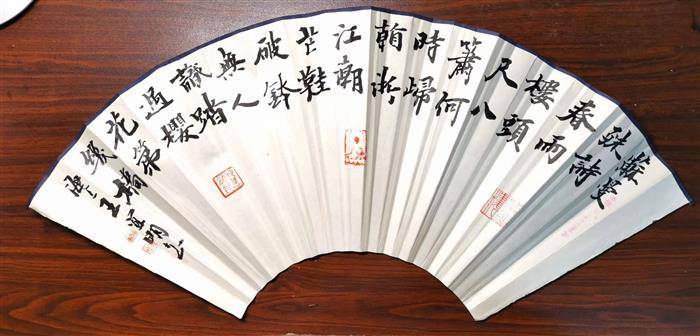 蘇曼
殊詩
春雨
樓頭
尺八
簫何
時歸
浙
江潮
芒鞋
破鉢
無人
識踏
過櫻
花第
幾橋
王宜明書